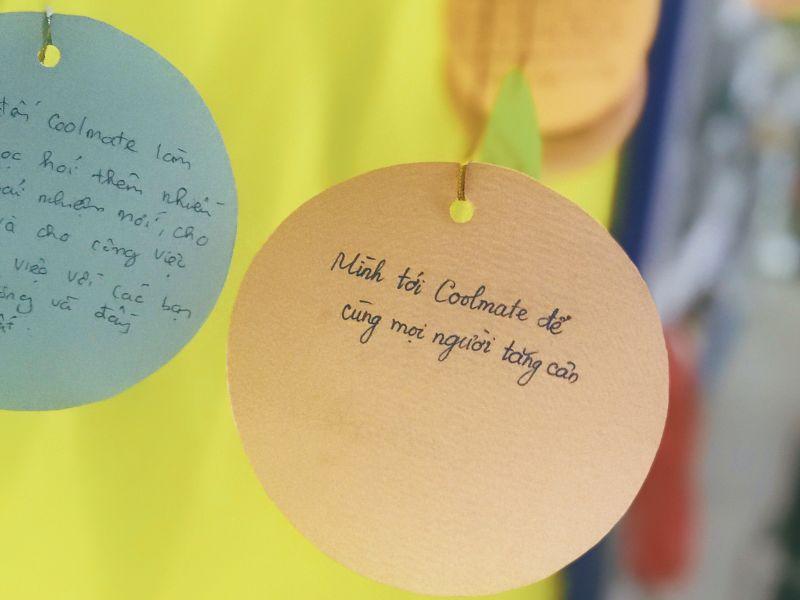 tới Coolmate làm
học hỏi thêm nhiều
nhiệm mới, cho
và cho công việc
việc với các bạn
và đầy
Mình tới Coolmate để
cùng mọi người tăng cân